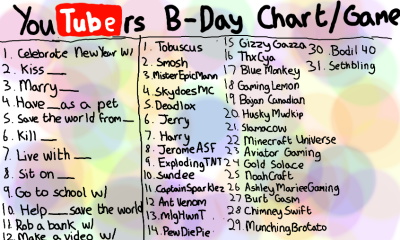 YouTubers B-Day Chart/Game
1. Celebrate New Year w/
2. Kiss___
3. Marry___
4. Have__as a pet
5. Save the world from__
6. Kill___
7. Live with___
8. Sit on___
9. Go to school w/
10. Help___save the world
11. Rob a bank w/
12. Make a video w/
1. Tobuscus
2. Smosh
3. MisterEpicMann
4. SkydoesMC
5. Deadlox
6. Jerry
7. Harry
8. JeromeASF
9. ExplodingTNT
10. Sundee
11. CaptainSparklez
12. Ant Venom
13. MlgHwnT
14. PewDiePie
15 GizzyGazza
16 ThxCya
17 Blue Monkey
18 Gaming Lemon
19 Bajan Canadian
20. Husky Mudkip
21. Slamacow
22 Minecraft Universe
23 Aviator Gaming
24 Gold Solace
25 NoahCraft
26 Ashley MarieeGaming
27 Burt Gasm
28 Chimney Swift
29 MunchingBrotato
30. Bodil 40
31. Sethbling